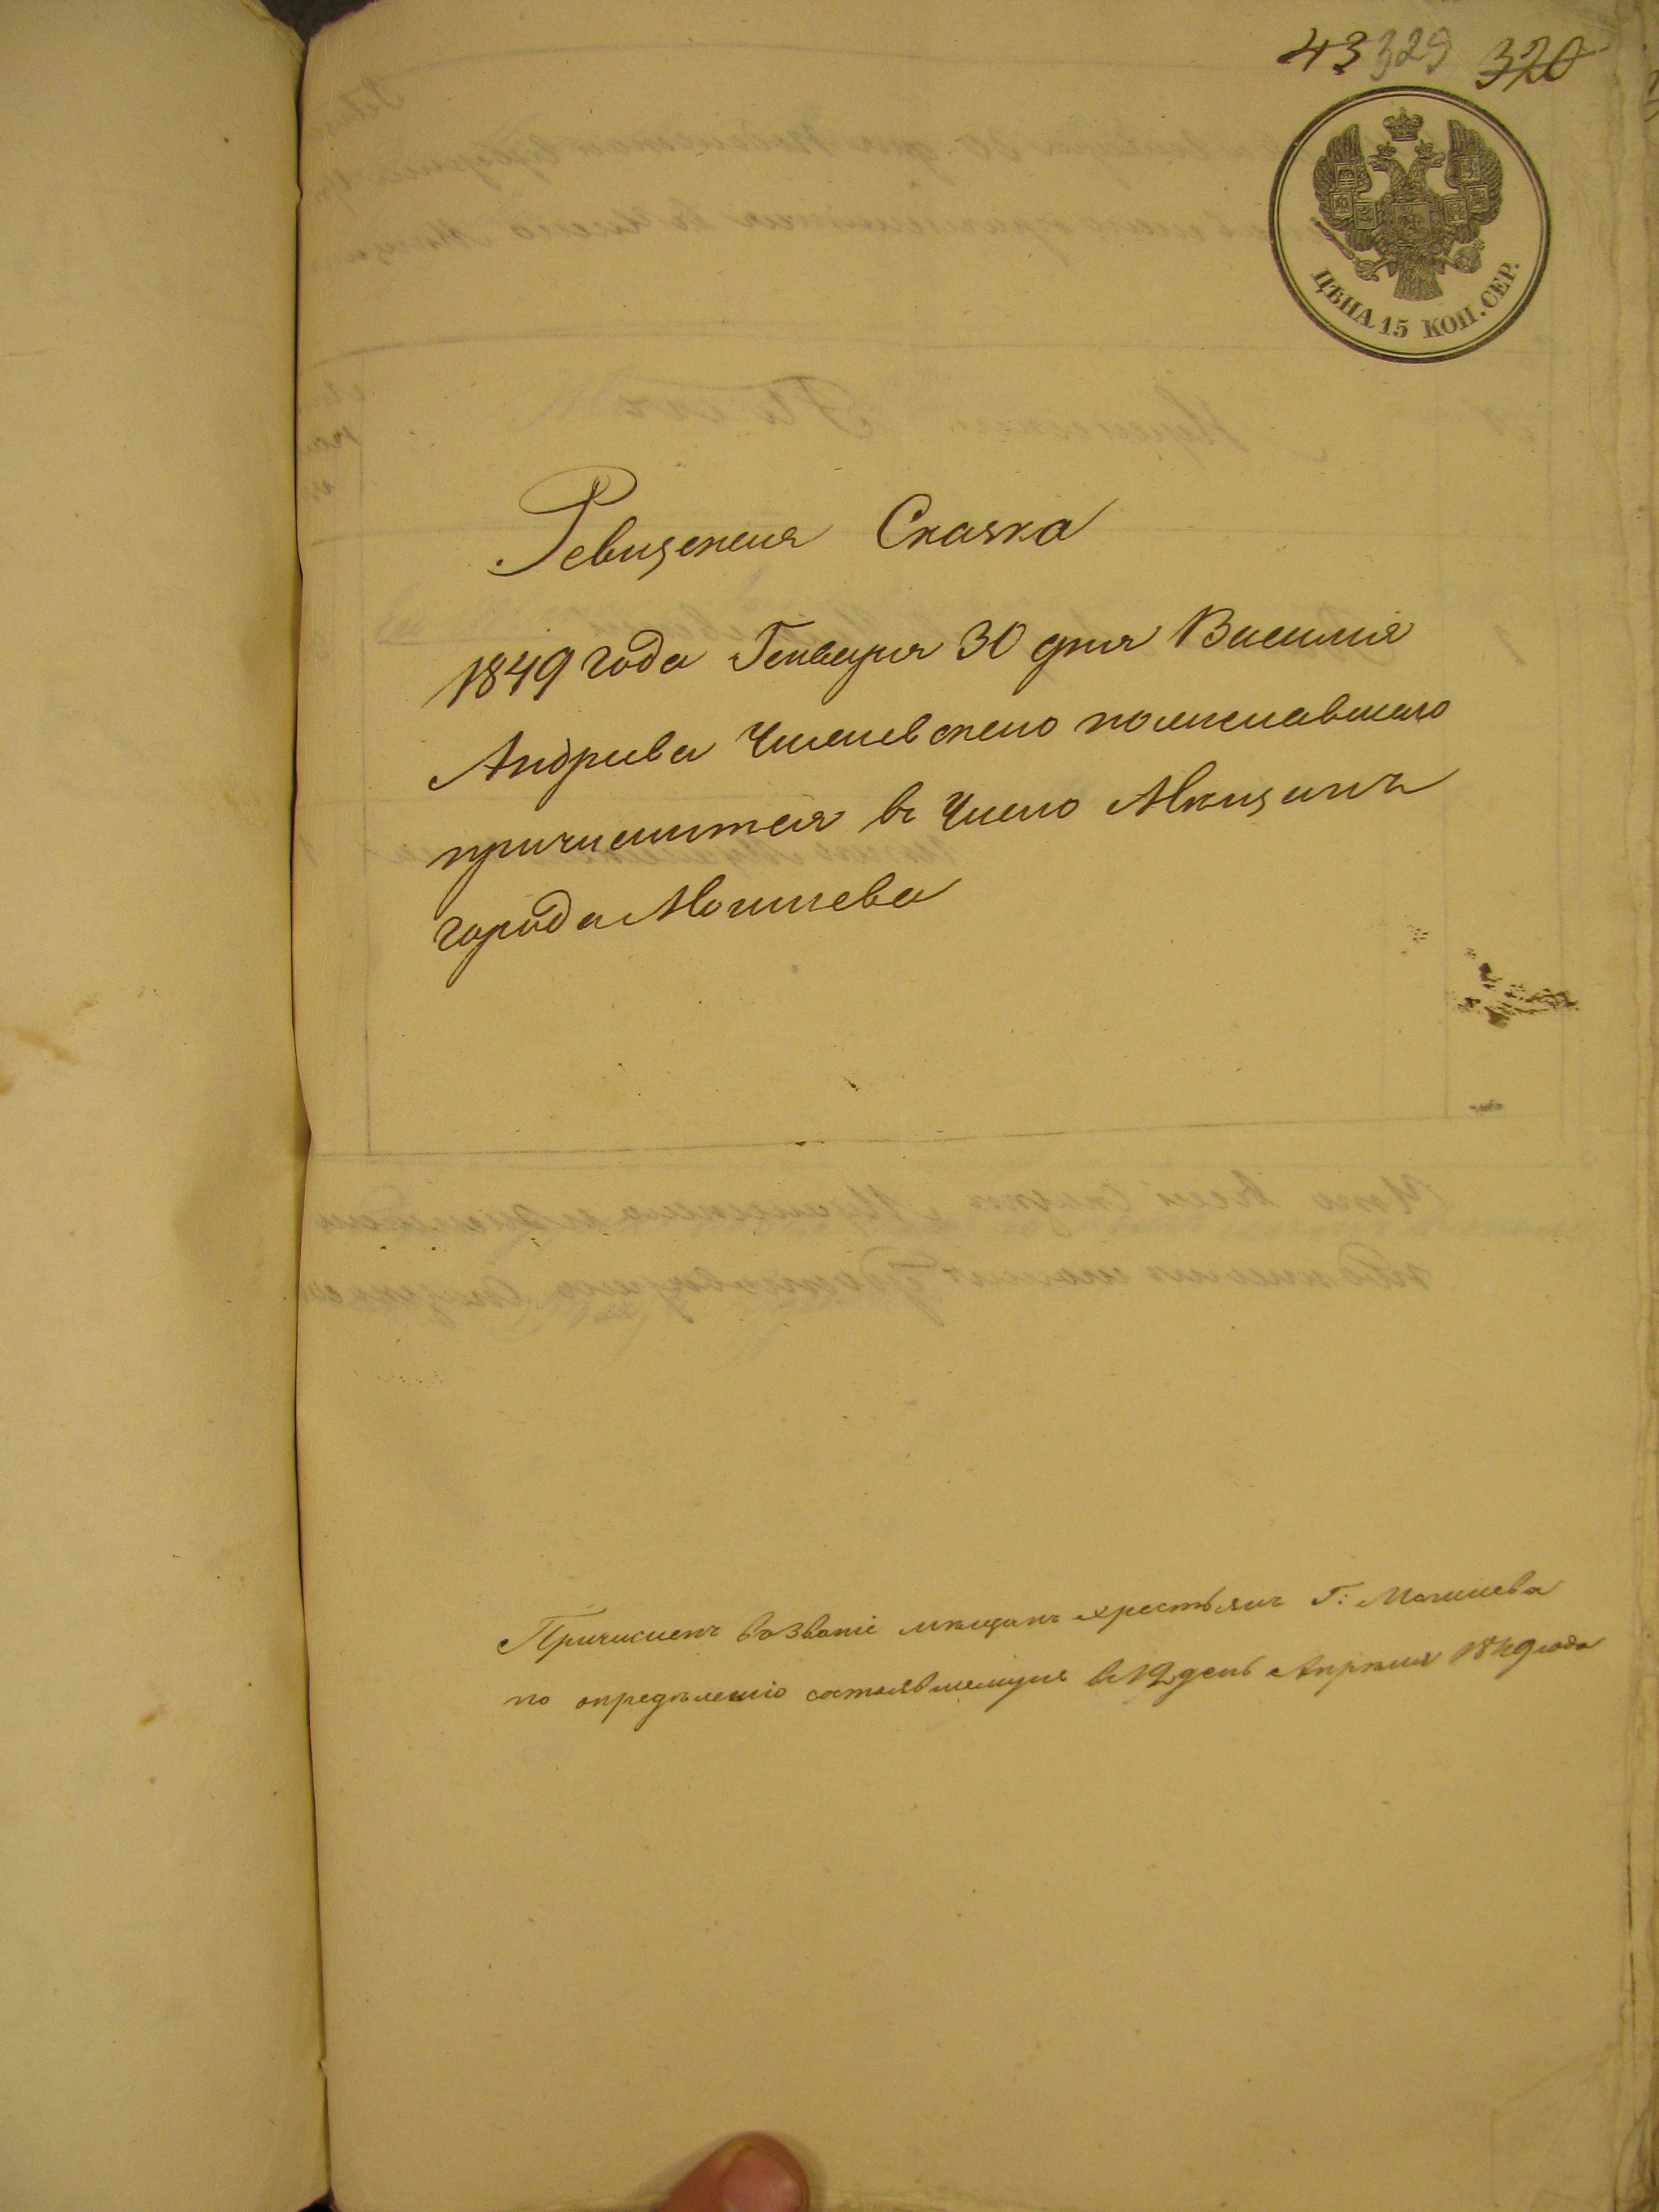 43 329 320
ЦѢНА 15 КОП. СЕР.
Ревизская Сказка
1849 года Генваря 30 дня Василія
Андріева пожелавшаго
причислится въ число Мѣщанъ
города Могилева
Причисленъ въ званіе мѣщанъ христьянъ Г: Могилева
по опредѣленію состоявшемуся въ 12 день Апрѣля 1849 года